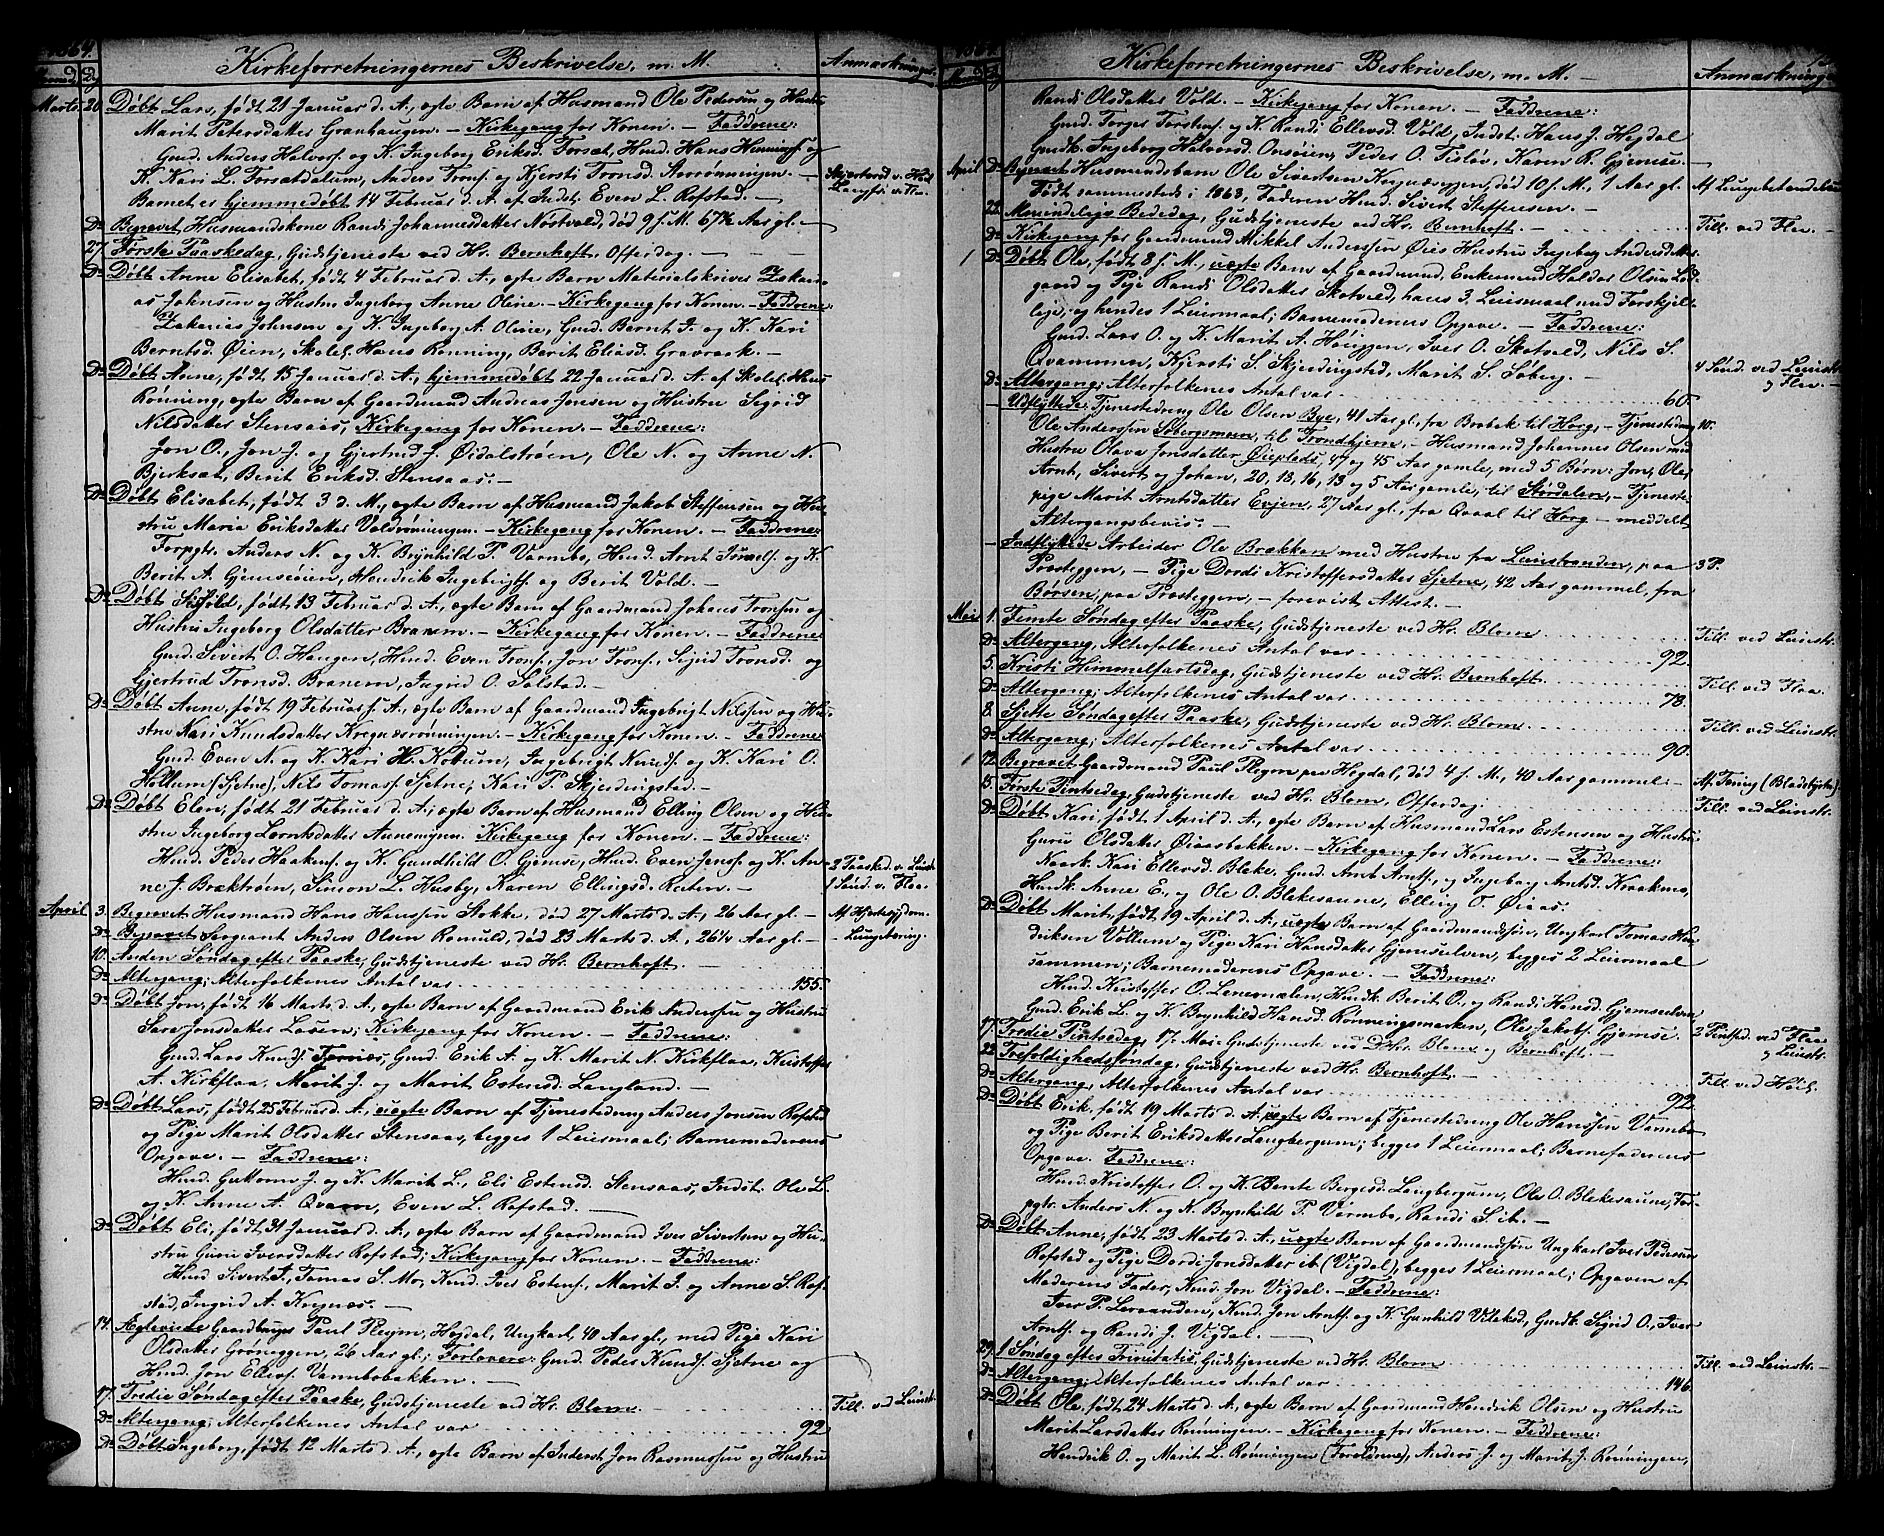 1864.
Kirkeforretningernes Beskrivelse, m. M.
Anmærkninger.
Marts 20. Døbt Lars, født 21 Januar d. A., ægte Barn af Husmand Ole Pedersen og Hustru
Marit Petersdatter Granhaugen. – Kirkegang for Konen. – Fadderne:
Gmd. Anders Halvors. og K. Ingeborg Eriksd. Forsæt, Hmd. Hans Hennings. og
K. Kari L. Forsætdalum, Anders Trons. og Kjersti Tronsd. Storrønningen. –
Barnet er hjemmedøbt 14 Februar d. A. af Indst. Even L. Rofstad. –
Do Begravet Husmandskone Randi Johannesdatter Nøstvold, død 9 f. M. 67½ Aar gl. –
27. Første Paaskedag, Gudstjeneste ved Hr. Bernhoft. Offerdag. –
Do Døbt Anne Elisabet, født 4 Februar d. A., ægte Barn Materialskriver Zakari-
as Johnsen og Hustru Ingeborg Anne Oline. – Kirkegang for Konen. – Fadderne:
Zakarias Johnsen og K. Ingeborg A. Oline, Gmd. Bernt J. og K. Kari
Berntsd. Øien, Skolel. Hans Rønning, Berit Eliasd. Gravraak. –
Do Døbt Anne, født 15 Januar d. A., hjemmedøbt 22 Januar d. A. af Skolel. Hans
Rønning, ægte Barn af Gaardmand Andreas Jonsen og Hustru Sigrid
Nilsdatter Stensaas, Kirkegang for Konen. – Fadderne:
Jon O., Jon J. og Gjertrud J. Øidalstrøen, Ole N. og Anne N.
Bjerksæt, Berit Eriksd. Stensaas. –
Do Døbt Elisabet, født 3 d. M., ægte Barn af Husmand Jakob Steffensen og Hu-
stru Maria Eriksdatter Voldrønningen. – Kirkegang for Konen. – Fadderne:
Forpgtr. Anders N. og K. Brynhild P. Varmbo, Hmd. Arnt Tomess. og K.
Berit A. Gjemseøien, Hendrik Ingebrigts. og Berit Vold. –
Do Døbt født 13 Februar d. A., ægte Barn af Gaardmand Johans Tronsen og
Hustru Ingeborg Olsdatter Branem. – Kirkegang for Konen. – Fadderne
Gmd. Sivert O. Haugen, Hmd. Even Trons., Jon Trons., Sigrid Tronsd. og
Gjertrud Tronsd. Branem, Ingrid O. Solstad. –
Do Døbt Anne, født 19 Februar f. A., ægte Barn af Gaardmand Ingebrigt Nilsen og Hu-
stru Kari Knudsdatter Kregnesrønningen. – Kirkegang for Konen. – Fadderne
Gmd. Even N. og K. Kari H. Kobum, Ingebrigt Knuds. og K. Kari O.
Hollum (Sjetne), Nils Tomas. Sjetne, Kari P. Skjerdingstad. –
Do Døbt Elen, født 21 Februar d. A., ægte Barn af Husmand Elling Olsen og Hu-
stru Ingeborg Lorntsdatter Annemyren. Kirkegang for Konen. – Fadderne:
Hmd. Peder Haakens. og K. Gundhild O. Gjemse, Hmd. Even Jens. og K. An-
ne J. Bræktrøen, Simon L. Husby, Karen Ellingsd. Reiten. –
2 Paasked. v. Leinst.
1 Sønd. v. Flaa.
April 3. Begravet Husmand Hans Hanssen Stokke, død 27 Marts d. A., 26 Aar gl. –
Af Hjertesygdom. –
Do Begravet Sergeant Anders Olsen Romuld, død 23 Marts d. A., 26¼ Aar gl. –
– Lungetæring. –
10. Anden Søndag efter Paaske, Gudstjeneste ved Hr. Bernhoft. –
Do Altergang; Alterfolkenes Antal var 155.
Do Døbt Jon, født 16 Marts d. A., ægte Barn af Gaardmand Erik Anderssen og Hustru
Sara Jonsdatter Løsen; Kirkegang for Konen. – Fadderne:
Gmd. Lars Knuds. Fornæs, Gmd. Erik A. og K. Marit N. Kirkflaa, Kristoffer
A. Kirkflaa, Marit J. og Marit Estensd. Langland. –
Do Døbt Lars, født 25 Februar d. A., uægte Barn af Tjenestedreng Anders Jonsen Rofstad
og Pige Marit Olsdatter Stensaas, begges 1 Leiermaal; Barnemoderens
Opgave. – Fadderne:
Hmd. Guttorm J. og K. Marit L., Eli Estensd. Stensaas, Indst. Ole L.
og K. Anne A. Qvam, Even L. Rofstad. –
Do Døbt Eli, født 31 Januar d. A., ægte Barn af Gaardmand Iver Sivertsen og Hu-
stru Guru Iversdatter Rofstad; Kirkegang for Konen. – Fadderne:
Hmd. Sivert I., Tomas S. Mo, Hmd. Iver Estens., Marit I. og Anne S. Rof-
stad, Ingrid A. Kregnæs. –
14. Ægteviede Gaardbruger Paul Pleym, Hegdal, Ungkarl, 40 Aar gl., med Pige Kari
Olsdatter Grøneggen, 26 Aar gl.; Forlovere: Gmd. Peder Knuds. Sjetne og
Hmd. Jon Ellevs. Varmbobakken. –
17. Tredie Søndag efter Paaske, Gudstjeneste ved Hr. Blom
Till. ved Leinst. –
Do Altergang; Alterfolkenes Antal var 92
Do Døbt Ingeborg, født 12 Marts d. A., ægte Barn af Inderst Jon Rasmussen og Hustru
Kirkeforretningernes Beskrivelse, m. M. –
Anmærkninger
Randi Olsdatter Vold. – Kirkegang for Konen. – Fadderne:
Gmd. Torger Torstens. og K. Randi Ellevsd. Vold, Indst. Hans J. Hegdal
Gmdk. Ingeborg Halvorsd. Onsøien, Peder O. Tisløv, Karen R. Gjemse. –
April Do Begravet Husmandsbarn Ole Sivertsen død 10 f. M., 1 Aar gl.
Af Lungebetændelse
Født sammesteds i 1863, Faderen Hmd. Sivert Steffensen. –
22. Almindelig Bededag, Gudstjeneste ved Hr. Bernhoft. –
Till. ved Flaa. –
Do Kirkegang for Gaardmand Mikkel Anderssen Øies Hustru Ingeborg Andersdatter.
Do Døbt Ole, født 8 f. M., uægte Barn af Gaardmand, Enkemand Haldor Olsen Lød-
gaard og Pige Randi Olsdatter Skotvold, hans 3. Leiermaal med Forskjel-
lige, og hendes 1 Leiermaal; Barnemoderens Opgave. – Fadderne:
Gmd. Lars O. og K. Marit A. Houggen, Iver O. Skotvold, Nils S.
Qvammen, Kjersti S. Skjerdingstad, Marit S. Søberg. –
Do Altergang; Alterfolkenes Antal var 60.
4 Sønd. ved Leinst.
og Flaa. –
– Udflyttede: Tjenestedreng Ole Olsen Bye, 41 Aar gl., fra Brobek til Horg, – Tjenestedreng
10.
Ole Anderssen Søbergsmoen, til Trondhjem, – Husmand Johannes Olsen med
Hustru Olava Jonsdatter Øieplads, 47 og 45 Aar gamle, med 5 Børn: Jon, Ole,
Arnt, Sivert og Johan, 20, 18, 16, 13 og 5 Aar gamle, til Størdalen, – Tjeneste-
pige Marit Arntsdatter Evjen, 27 Aar gl., fra Qvaal til Horg – meddelt
Altergangsbevis. –
– Indflyttede Arbeider Ole Brækken med Hustru fra Leinstranden, paa
3 P.
Trøeggen, – Pige Dordi Kristoffersdatter Sjetne, 42 Aar gammel, fra
Børsen, paa Trøeggen, – forevist Attest. –
Mai 1. Femte Søndag efter Paaske, Gudstjeneste ved Hr. Blom
Till. ved Leinst.
Do Altergang, Alterfolkenes Antal var 92.
5. Kristi Himmelfartsdag, Gudstjeneste ved Hr. Bernhoft
Till. ved Flaa.
Do Altergang; Alterfolkenes Antal var 78.
8. Sjette Søndag efter Paaske, Gudstjeneste ved Hr. Blom
Till. ved Leinst.
Do Altergang; Alterfolkenes Antal var 90.
12. Begravet Gaardmand Paul Pleym paa Hegdal, død 4 f. M., 40 Aar gammel. –
Af Tæring (Blodstyrtn.)
15. Første Pintsedag, Gudstjeneste ved Hr. Blom, Offerdag.
Till. ved Leinst.
Do Døbt Kari, født 1 April d. A., ægte Barn af Husmand Lars Estensen og Hustru
Guru Olsdatter Øiaasbakken. – Kirkegang for Konen. – Fadderne:
Kari Ellevsd. Bleke, Gmd. Arnt Arnts., og Ingeborg Arntsd. Kraaknes,
Hmdk. Anne E. og Ole O. Blekesaune, Elling O. Øiaas.
Do Døbt Marit, født 19 April d. A., uægte Barn af Gaardmandssøn, Ungkarl Tomas Hen-
driksen Vollum og Pige Kari Hansdatter Gjemselven, begges 2 Leiermaal
sammen; Barnemoderens Opgave. – Fadderne:
Hmd. Kristoffer O. Hmdk. Berit O. og Randi Hansd. Gjemselven
Gmd. Erik L. og K. Brynhild Hansd. Rønningsmarken, Ole Jakobs. Gjemse. –
17. Tredie Pintsedag, 17. Mai Gudstjeneste ved Hr. Blom og Bernhoft. –
2 Pintsd. ved Flaa
og Leinst.
22. Trefoldighedssøndag, Gudstjeneste ved Hr. Bernhoft. –
Till. ved Høil.
Do Altergang, Alterfolkenes Antal var 92.
Do Døbt Erik, født 19 Marts d. A., uægte Barn af Tjenestedreng Ole Hanssen Varmbo
og Pige Berit Eriksdatter Langbergum; begges 1 Leiermaal; Barnefaderens
Opgave. Fadderne:
Hmd. Kristoffer O. og K. Bente Bergesd. Langbergum, Ole O. Blekesaune, For-
pgtr. Anders N. og K. Brynhild P. Varmbo, Randi S. ib. –
Do Døbt Anne, født 23 Marts d. A., uægte Barn af Gaardmandssøn Ungkarl Iver Pedersen
Rofstad og Pige Dordi Jonsdatter ib (Vigdal), begges 1 Leiermaal; Opgaven af
Moderens Fader, Hmd. Jon Vigdal. – Fadderne:
Iver P. Leraanden, Hmd. Jon Arnts. og K. Gunhild Gmdk. Sigrid O., Iver
Arnts. og Randi J. Vigdal. –
29. 1 Søndag efter Trinitatis, Gudstjeneste ved Hr. Blom
Till. ved Leinst. –
Do Altergang; Alterfolkenes Antal var 146.
Do Døbt Ole, født 24 Marts d. A., ægte Barn af Gaardmand Hendrik Olsen og Hustru
Marit Larsdatter Rønningen. – Kirkegang for Konen. – Fadderne:
Hendrik O. og Marit L. Rønningen (Forældrene), Anders J. og Marit J. Rønningen,